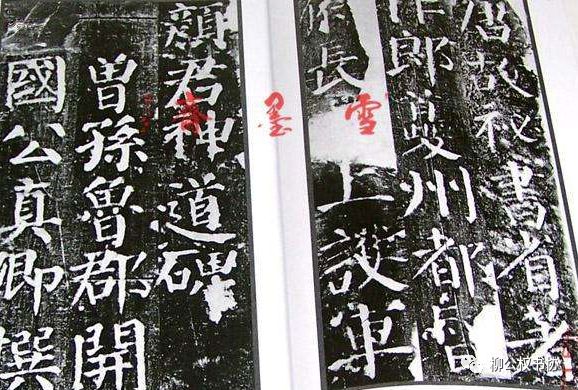 唐故秘書省著
作郎夔州都督
長上護軍
顏君神道碑
曾孫魯郡開
國公真卿撰
雪墨斋
柳公权书协